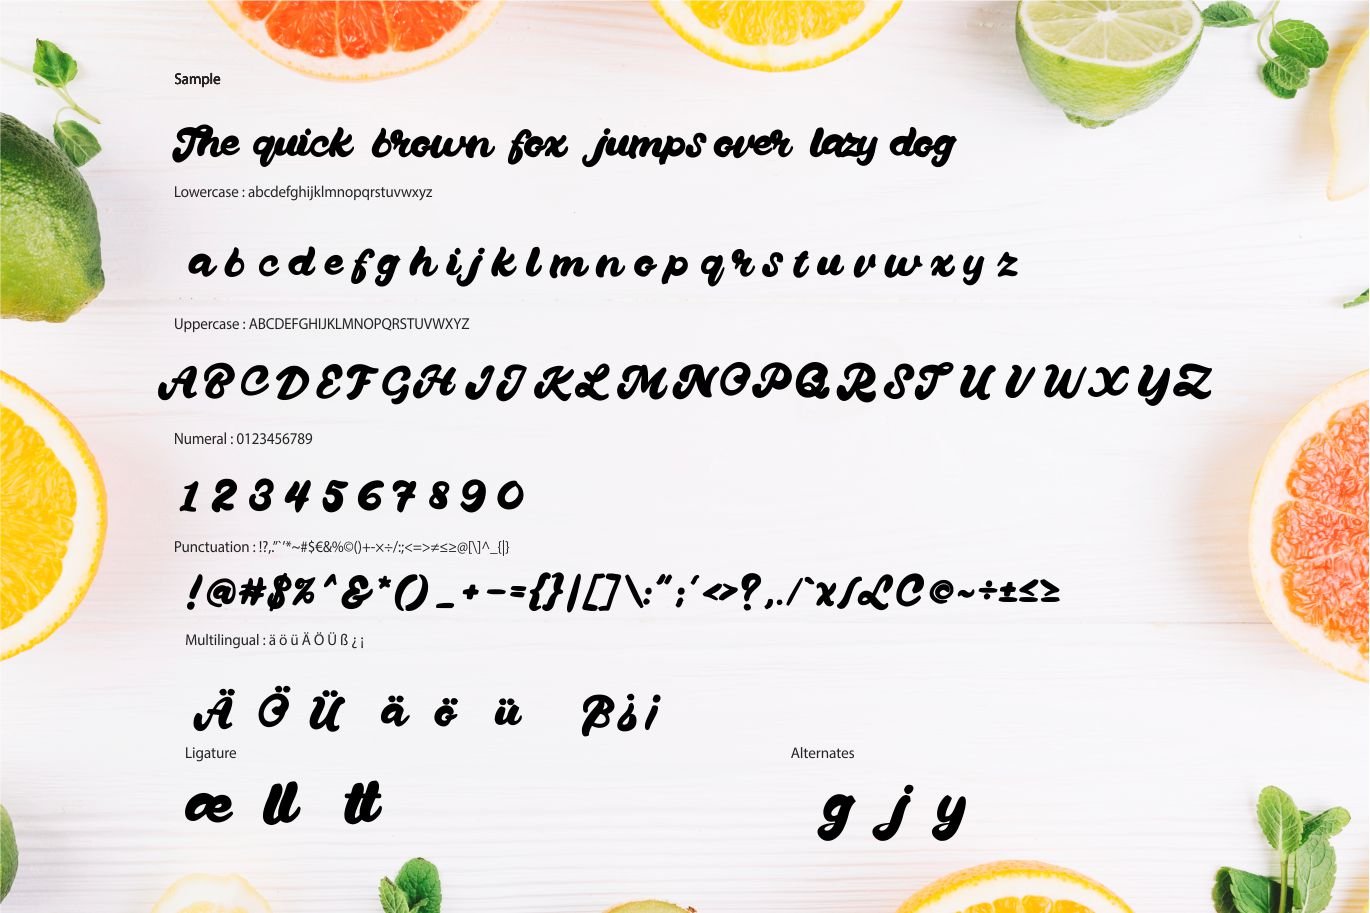 Sample
The quick brown fox jumps over lazy dog
Lowercase : abcdefghijklmnopqrstuvwxyz
a b c d e f g h i j k l m n o p q r s t u v w x y z
Uppercase : ABCDEFGHIJKLMNOPQRSTUVWXYZ
A B C D E F G H I J K L M N O P Q R S T U V W X Y Z
Numeral : 0123456789
1 2 3 4 5 6 7 8 9 0
Punctuation : !?,.”`´'*~#$€&%©()+-×÷/:;<=>≠≤≥@[\]^_{|}
! @ # $ % ^ & * ( ) _ + - = { } | [ ] \ : " ; ' < > ? , . / ` x ∫ £ C © ~ ÷ ± ≤ ≥
Multilingual : ä ö ü Ä Ö Ü ß ¿ ¡
Ä Ö Ü ä ö ü ß ¿ ¡
Ligature
Alternates
æ ll tt
g j y